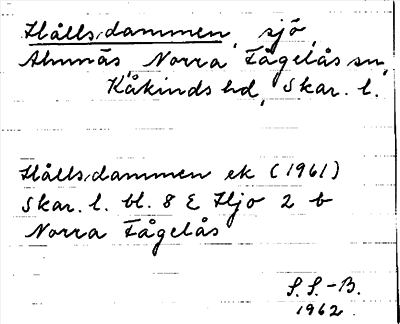 Hållsdammen, sjö,
Almnäs, Norra Fågelås sn,
Kåkinds hd, Skar. l.
Hållsdammen ek (1961)
Skar. l. bl. 8 E Hjo 2 b
Norra Fågelås
S. S.-B.
1962.